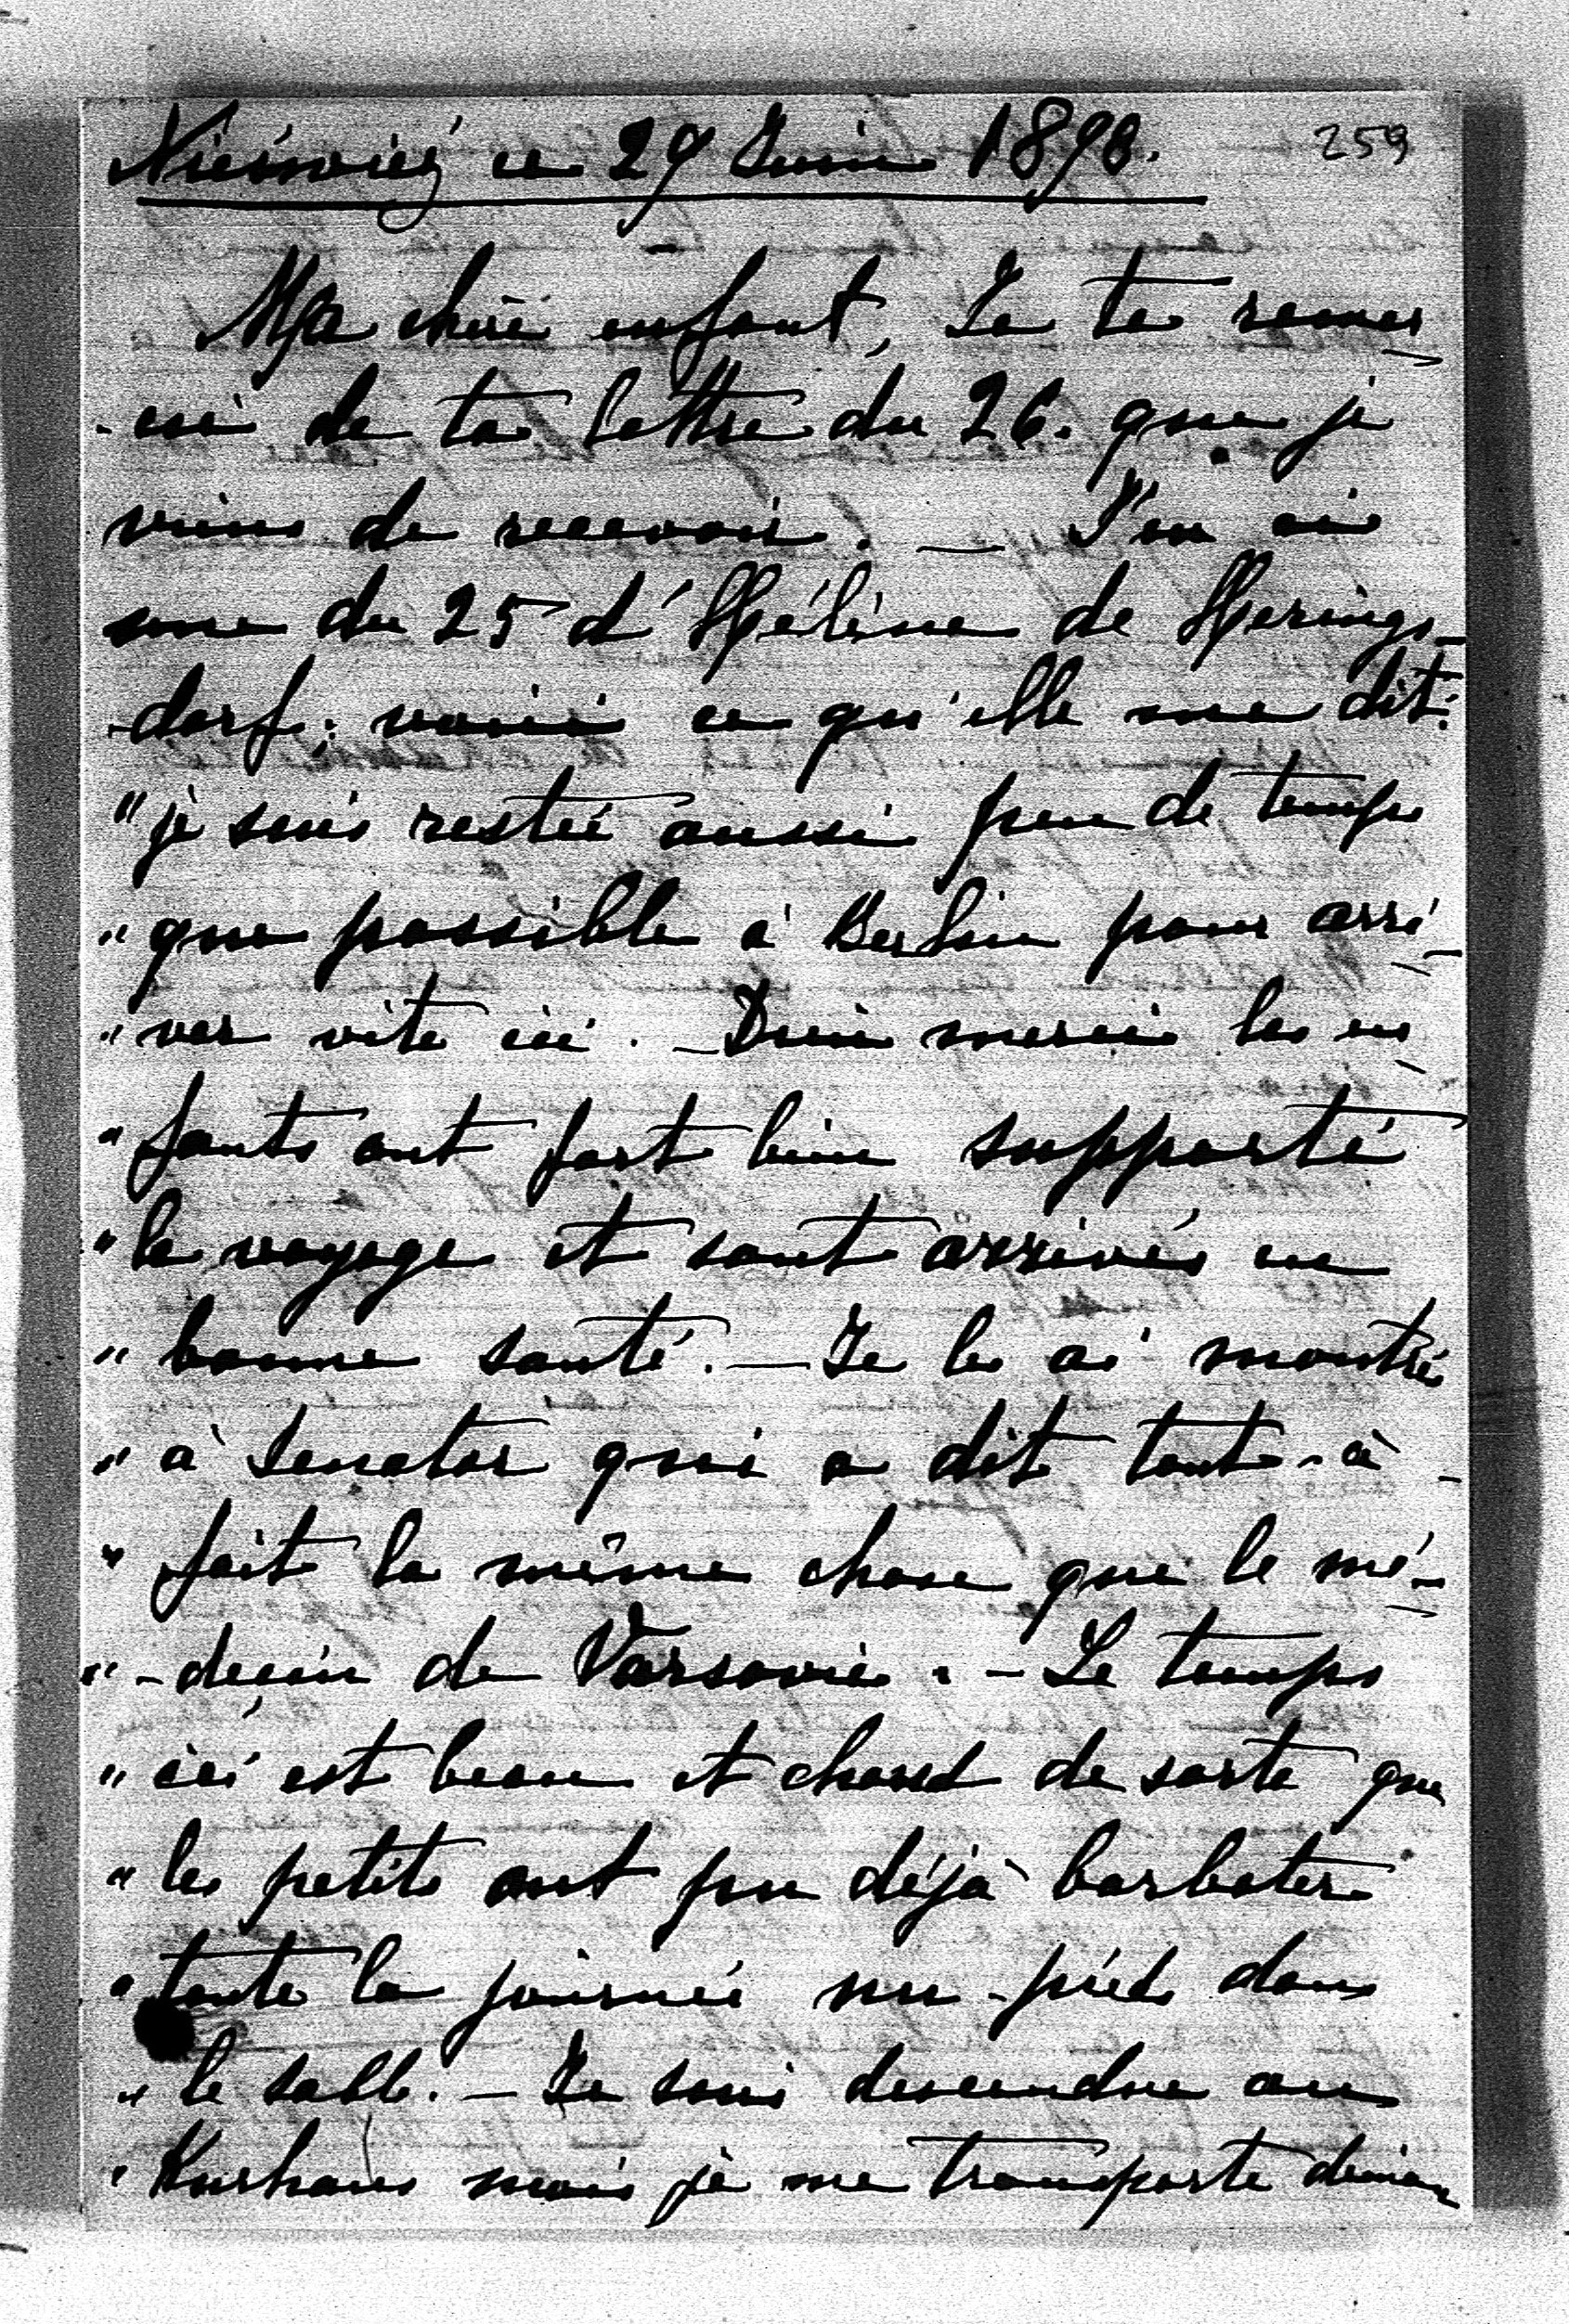 Nieśwież ce 29 Juin 1898.
259
Ma chère enfant, Je te remer
-cie de ta lettre du 26. que je
viens de recevoir. — J'en ai
une du 25 d'Hélène de Herings-
-dorf; voici ce qu'elle me dit:
"je suis restée aussi peu de temps
" que possible à Berlin pour arri-
" ver vite ici. — Dieu merci les en
" fants ont fort bien supporté
" le voyage et sont arrivés en
" bonne santé. — Je les ai montré
" à Senator qui a dit tout-à-
" fait la même chose que le mé-
" -decin de Varsovie. — Le temps
" ici est beau et chaud de sorte que
" les petits ont pu déjà barboter
" toute la journée nu-pieds dans
" le sable. — Je suis descendue au
" Kurhaus mais je me transporte demain